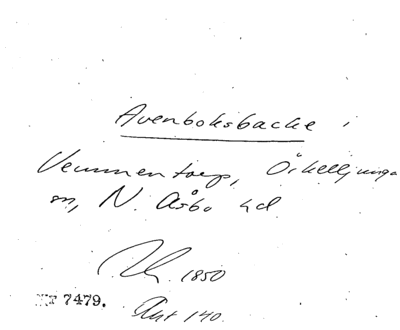 Avenboksbacke i
Vemmentorp, Örkelljunga
sn, N. Åsbo hd
1850
NT 7479. Akt 140.